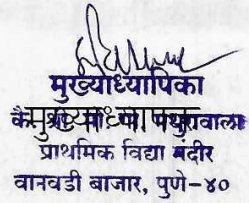 मुख्याध्यापिका
मुख्याध्यापक
प्राथमिक विद्या मंदीर
वानवडी बाजार, पुणे-४०